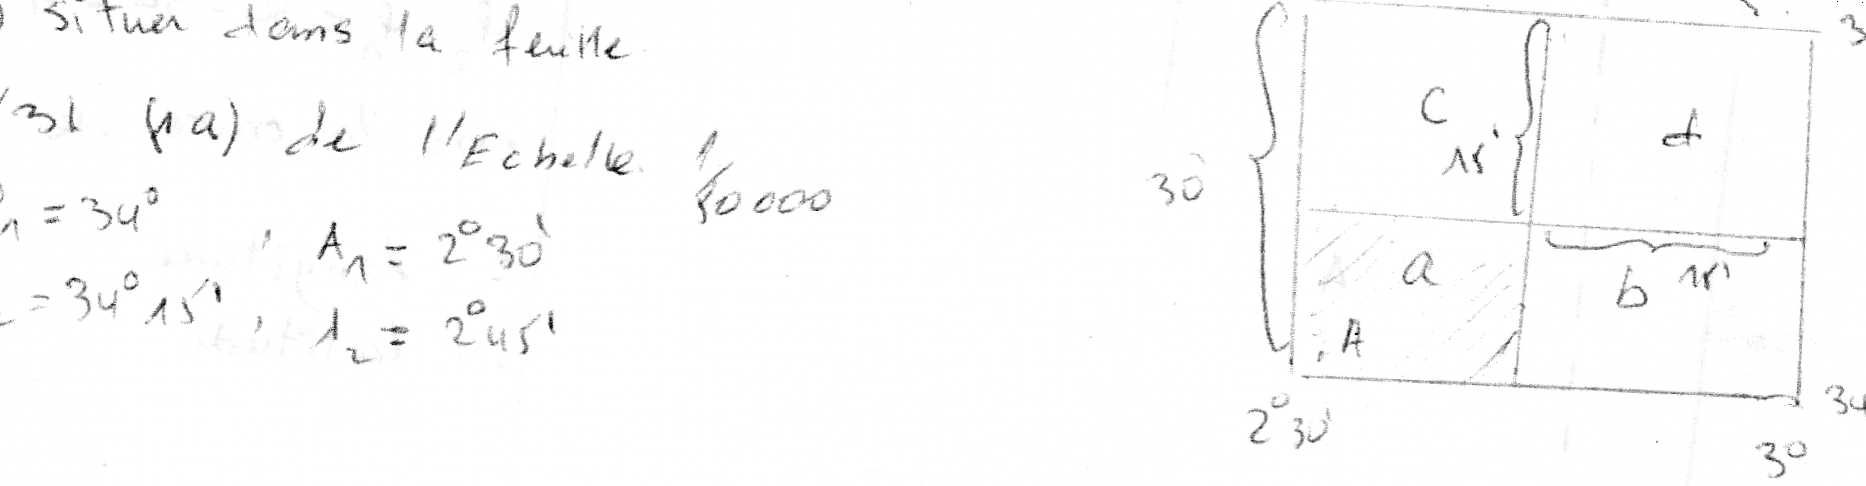 situer dans la feuille
31 (1a) de l'Echelle 1/50000
1 = 34° , A1 = 2°30'
= 34°15' , λ2 = 2°45'
3
C
d
15'
30'
a
b 15'
.A
2°30'
34
3°